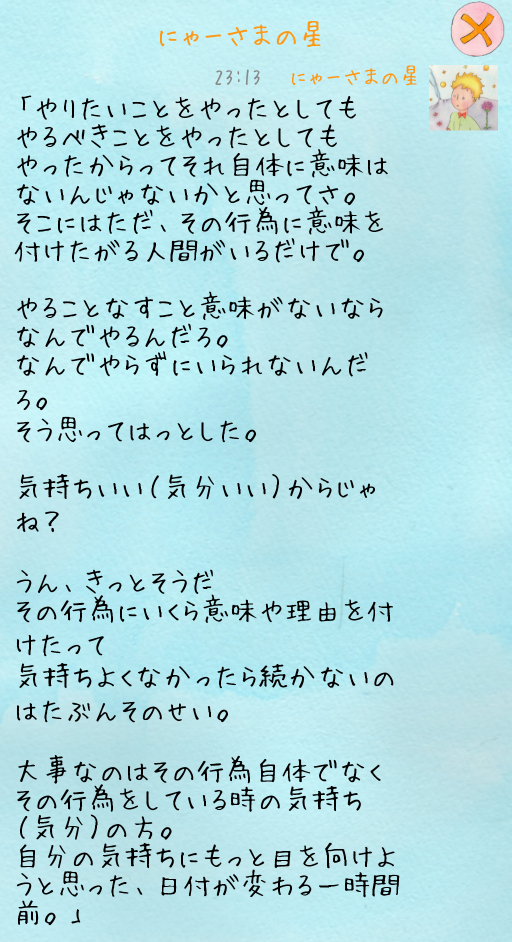 にゃーさまの星
23:13 にゃーさまの星
「やりたいことをやったとしても
やるべきことをやったとしても
やったからってそれ自体に意味は
ないんじゃないかと思ってさ。
そこにはただ、その行為に意味を
付けたがる人間がいるだけで。
やることなすこと意味がないなら
なんでやるんだろ。
なんでやらずにいられないんだ
ろ。
そう思ってはっとした。
気持ちいい(気分いい)からじゃ
ね?
うん、きっとそうだ
その行為にいくら意味や理由を付
けたって
気持ちよくなかったら続かないの
はたぶんそのせい。
大事なのはその行為自体でなく
その行為をしている時の気持ち
(気分)の方。
自分の気持ちにもっと目を向けよ
うと思った、日付が変わる一時間
前。」